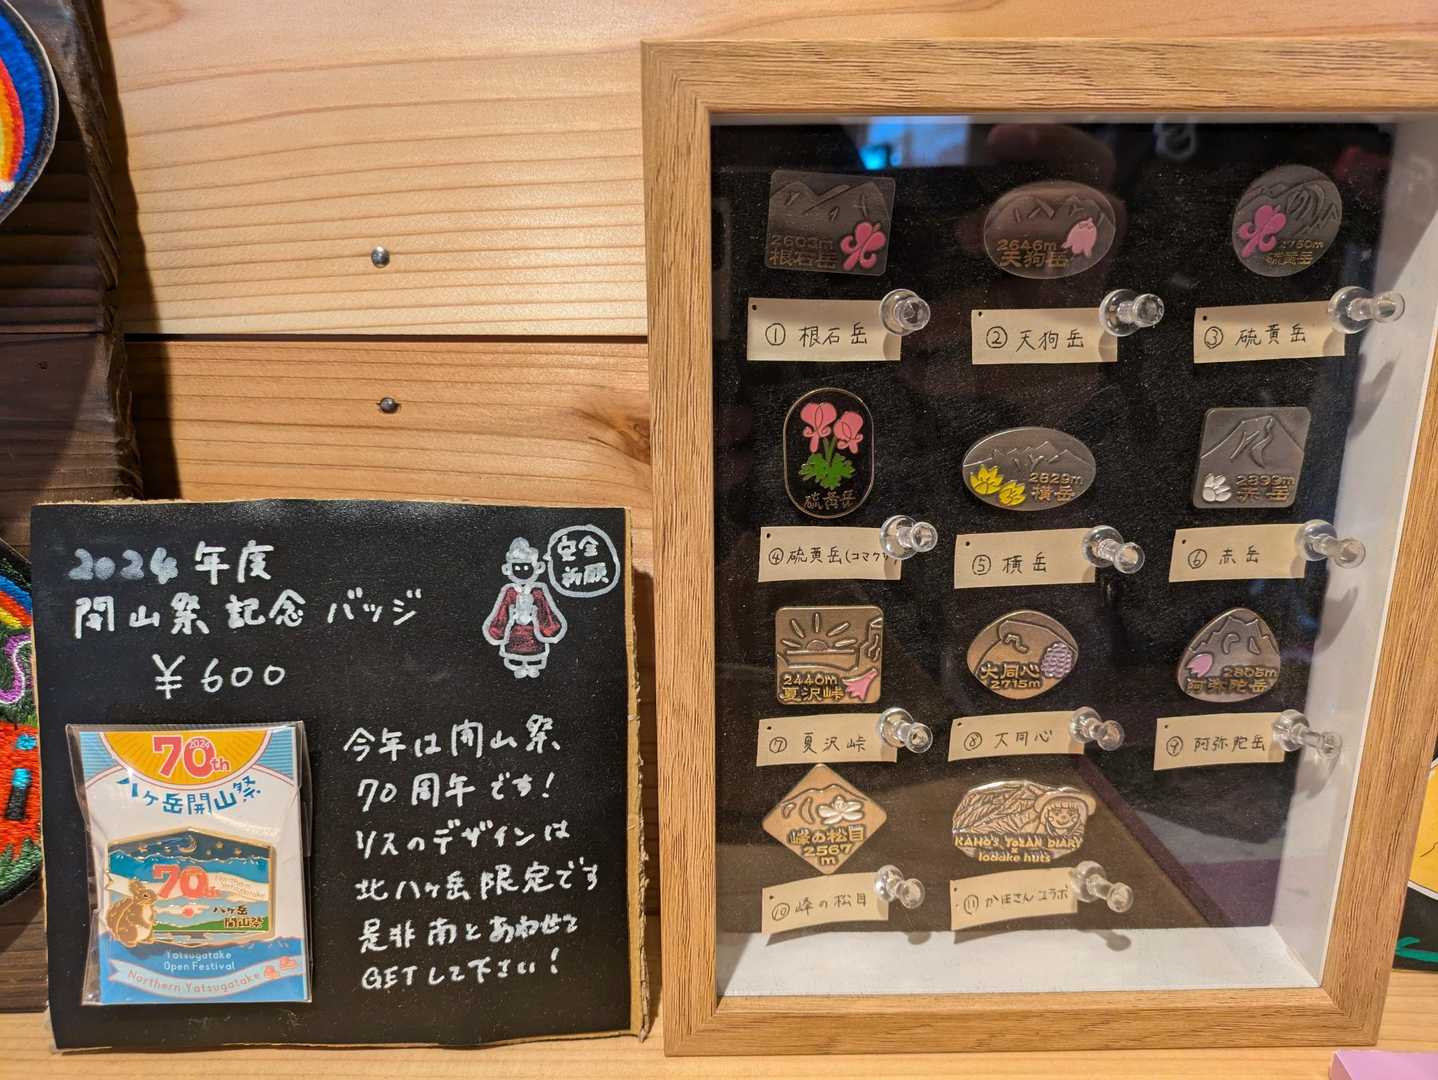 2024年度
開山祭記念バッジ
¥600
安全
祈願
今年は開山祭
70周年です!
リスのデザインは
北八ヶ岳限定です
是非南とあわせて
GETして下さい!
2024
70th
八ヶ岳開山祭
70th
八ヶ岳
開山祭
Yatsugatake
Open Festival
Northern Yatsugatake
2603m
根石岳
2646m
天狗岳
2760m
硫黄岳
①根石岳
②天狗岳
③硫黄岳
硫黄岳
2829m
横岳
2899m
赤岳
④硫黄岳(コマクサ
⑤横岳
⑥赤岳
2440m
夏沢峠
大同心
2715m
2805m
阿弥陀岳
⑦夏沢峠
⑧大同心
⑨阿弥陀岳
峰の松目
2567
m
KAHO'S TOZAN DIARY
×
Iodake huts
⑩峰の松目
⑪かほさんコラボ